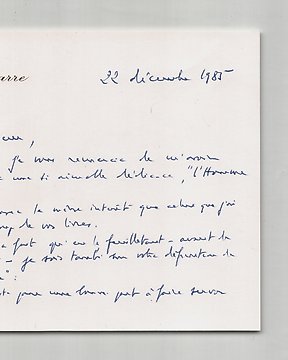 arre
22 décembre 1985
je vous remercie de m'avoir
une si aimable dédicace, "l'Homme
le même intérêt que celui que j'ai
de vos livres.
fait qu'en le feuilletant - avant de
- je sois tombé sur votre définition de
":
pour une bonne part à faire